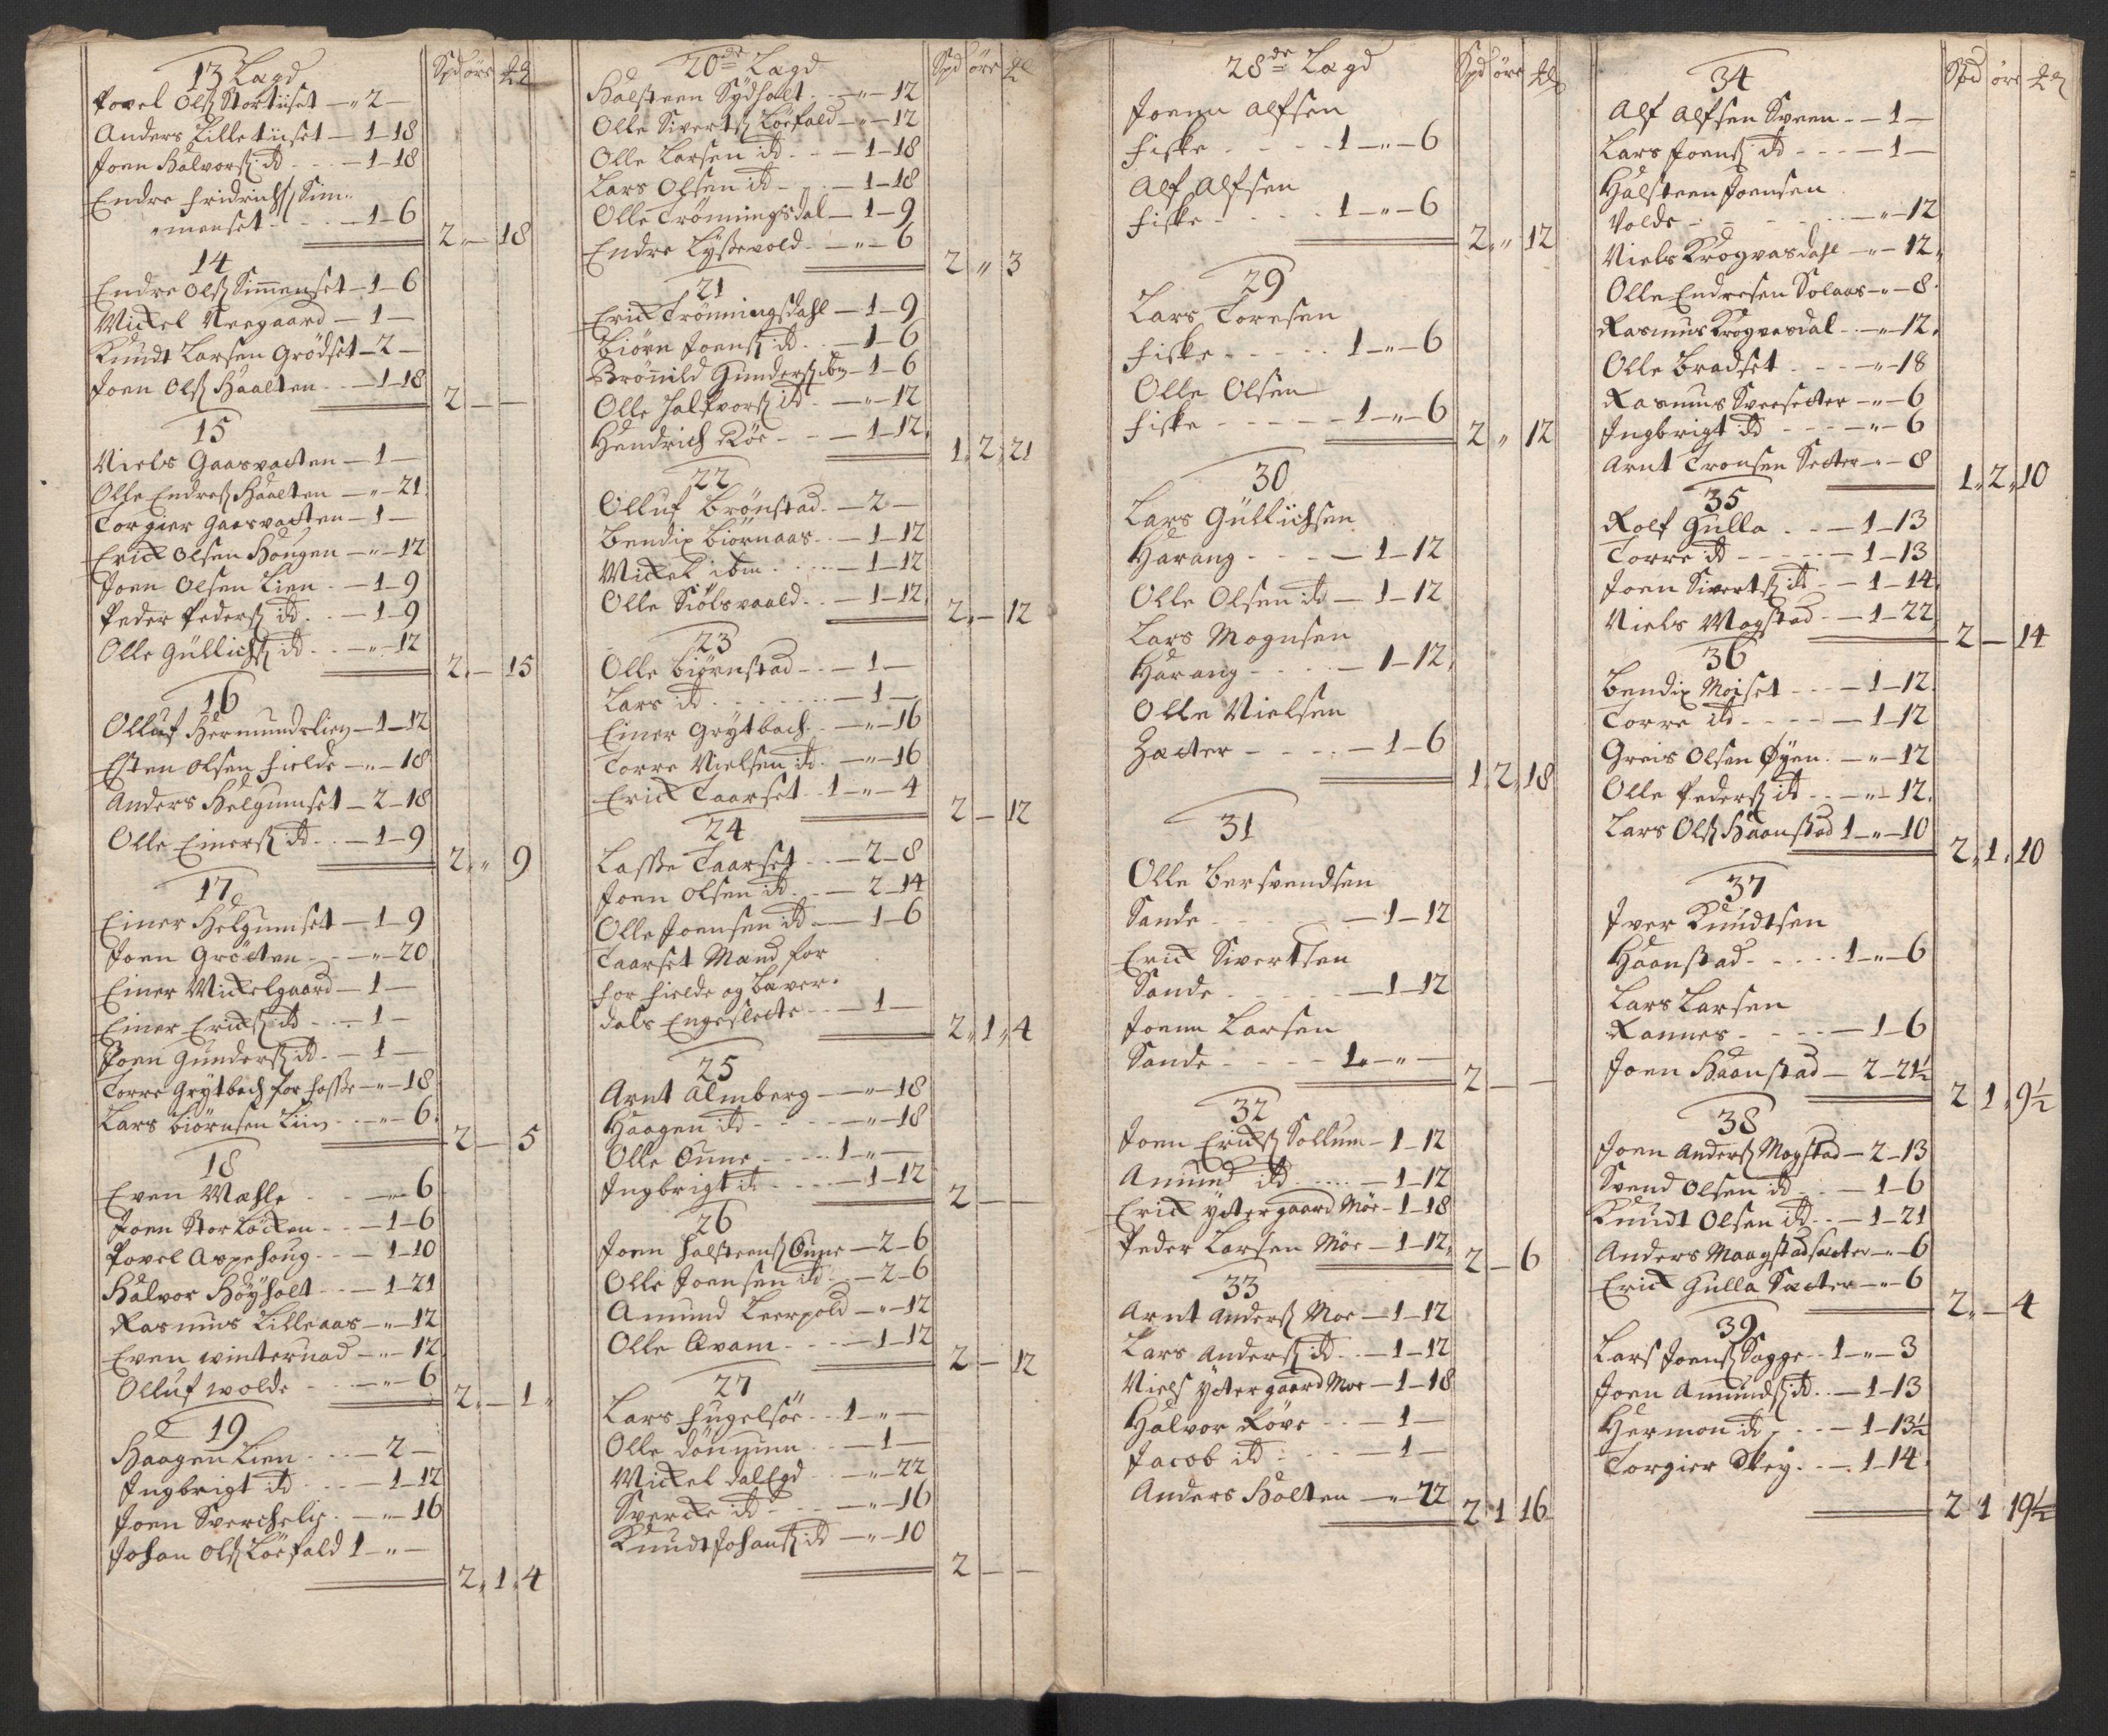 13 Lægd Spd öre
Povel Olsß Stortüset — „ 2 —
Anders Lilletüset — 1-18
Joen Halvorß id — 1-18
Endre Fridrichß Sim-
menset — 1-6
2 „ — 18
14
Endre Olß Simmenset — 1-6
Mickel Neegaard — 1 —
Knudt Larsen Grödset — 2 —
Joen Olß Haalten — 1-18
2 — —
15
Niels Gaasvatten — 1 —
Olle Endreß Haalten — „ — 21
Torgier Gaasvatten — 1 —
Erick Olsen Hougen — „ — 12
Joen Olsen Lien — 1-9
Peder Pederß id — 1-9
Olle Güllichß id — „ — 12
2 „ — 15
16
Olluf Hermundslien — 1-12
Esten Olsen Fielde — „ — 18
Anders Helgumset — 2-18
Olle Einerß id — 1-9
2 „ „ 9
17
Einer Helgumset — 1-9
Joen Grötten — „ — 20
Einer Mickelgaard — 1 —
Einer Erickß id — 1 —
Joen Gunderß id — 1 —
Torre Grytbach for Fosse — „ — 18
Lars Biörnsen Liin — „ — 6
2 — 5
18
Even Mæhle — „ — 6
Joen Storløcken — 1-6
Povel Aspehoug — 1-10
Halvor Höyholt — 1-21
Rasmus Lilleaas — „ — 12
Even Winternad — „ — 12
Olluf Wolde — „ — 6
2 „ — 1 „
19
Haagen Lien — 2 —
Ingbrigt id — 1-12
Joen — „ — 16
Johan Olß Löefald 1 — „ —
2 „ 1 „ 4
20de Lægd Spd öre
Halsteen Sÿdholt — „ — 12
Olle Sivertß Löefald — „ — 12
Olle Larsen id — 1-18
Lars Olsen id — 1-18
Olle Trönningsdal — 1-9
Endre Lyssevold — „ — 6
2 „ 3
21
Erick Trönningsdahl — 1-9
Biörn Joenß id — 1-6
Brönild Gunderß ibm — 1-6
Olle Halfvorß id — „ — 12
Hendrich Röe — 1-12
1 „ 2 „ 21
22
Olluf Brönstad — 2 —
Bendix Biörnaas — 1-12
Mickel ibm — 1-12
Olle Siölsvaald — 1-12
2 „ — 12
23
Olle Biörnstad — 1 —
Lars id — 1 —
Einer Grÿtbach — „ — 16
Torre Nielsen id — „ — 16
Erick Taarset 1 — „ — 4
2 — 12
24
Lasse Taarset — 2-8
Joen Olsen id — 2-14
Olle Joensen id — 1-6
Taarset Mand for
for Fielde og Bæver-
dals Engeslette — 1 —
2 „ 1 „ 4
25
Arnt Almberg — „ — 18
Haagen id — „ — 18
Olle Öune 1 — „ —
Ingbrigt id — 1-12
2 — —
26
Joen Halsteenß Öune — 2-6
Olle Joensen id — 2-6
Amund Leerpold — „ — 12
Olle Qvam — 1-12
2 — 12
27
Lars Fugelsöe 1 — „ —
Olle Dönnum — 1 —
Mickel Dalegd — „ — 22
Svercke id — „ — 16
Knudt Johanß id — „ — 10
2 — —
28de Lægd Spd öre
Joenn Alfsen
Fiske 1 — „ — 6
Alf Alfsen
Fiske 1 — „ — 6
2 „ „ 12
29
Lars Toresen
Fiske 1 — „ — 6
Olle Olsen
Fiske 1 — „ — 6
2 „ 12
30
Lars Güllichsen
Harang — 1-12
Olle Olsen id — 1-12
Lars Mognsen
Harang — 1-12
Olle Nielsen
Zætter — 1-6
1 „ 2 „ 18
31
Olle Bersvendsen
Sande — 1-12
Erick Sivertsen
Sande — 1-12
Joenn Larsen
Sande — 1 — „ —
2 — —
32
Joen Erickß Sollum — 1-12
Amund id — 1-12
Erick Yttergaard Möe — 1-18
Peder Larsen Möe — 1-12
2 — 6
33
Arnt Anderß Moe — 1-12
Lars Anderß id — 1-12
Niels Yttergaard Moe — 1-18
Halvor Röve — 1 —
Jacob id — 1 —
Anders Holten — „ — 22
2 1 16
34 Spd öre
Alf Alfsen Sveen — 1 —
Lars Joenß id — 1 —
Halsteen Joensen
Volde — „ — 12
Niels Krogvasdahl — „ — 12
Olle Endresen Solaas — „ — 8
Rasmus Krogvasdal — „ — 12
Olle Bradset — „ — 18
Rasmus Sveesetter — „ — 6
Ingbrigt id — „ — 6
Arnt Tronsen Setter — „ — 8
1 „ 2 „ 10
35
Rolf Gulla — 1-13
Torre id — 1-13
Joen Sivertß id — 1-14
Niels Mogstad — 1-22
2 — 14
36
Bendix Moiset — 1-12
Torre id — 1-12
Greis Olsen Øyen — „ — 12
Olle Pederß id — „ — 12
Lars Olß Haanstad 1 — „ — 10
2 „ 1 „ 10
37
Iver Knudtsen
Haanstad 1 — „ — 6
Lars Larsen
Rannes — 1-6
Joen Haanstad — 2-21½
2 1 „ 9½
38
Joen Anderß Mogstad — 2-13
Svend Olsen id — 1-6
Knudt Olsen id — 1-21
Anders Maagstadsætter — „ — 6
Erick Gulla Sætter — „ — 6
2 „ — 4
39
Lars Joenß Sogge 1 — „ — 3
Joen Amundß id — 1-13
Hermon id — 1-13½
Torgier Skey — 1-14
2 1 19½